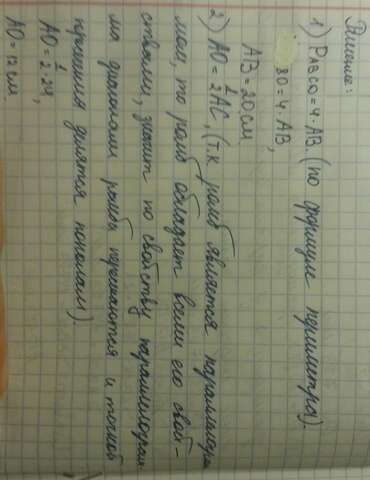 Решение:
1) PABCD = 4 · AB. (по формуле периметра).
80 = 4 · AB,
AB = 20 см
2) AO = 1/2 AC, (т.к. ромб является параллелограм-
мом, то ромб обладает всеми его свой-
ствами, значит по свойству параллелограм-
ма диагонали ромба пересекаются и точкой
пересечения делятся пополам).
AO = 1/2 · 24,
AO = 12 см.